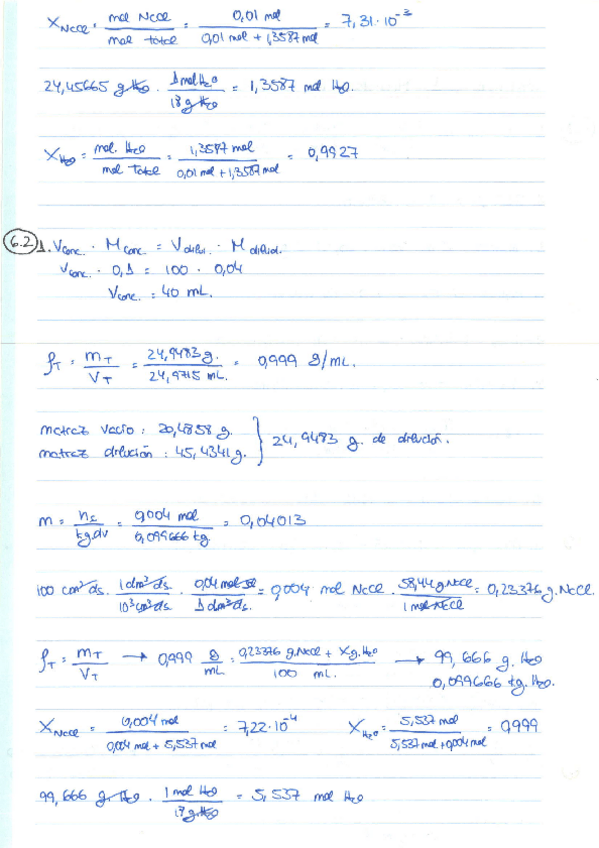 X_NaCl = mol NaCl / mol total = 0,01 mol / 0,01 mol + 1,3587 mol = 7,31·10⁻³
24,45665 g H₂O · 1 mol H₂O / 18 g H₂O = 1,3587 mol H₂O.
X_H₂O = mol H₂O / mol total = 1,3587 mol / 0,01 mol + 1,3587 mol = 0,9927
6.2 1. V conc. · M conc. = V dilui. · M diluid.
V conc. · 0,1 = 100 · 0,04
V conc. = 40 mL.
ρ_T = m_T / V_T = 24,9483 g. / 24,9715 mL. = 0,999 g/mL.
matraz vacío : 20,4858 g.
matraz dilución : 45,4341 g. } 24,9483 g. de dilución.
m = n_s / kg.dv = 0,004 mol / 0,099666 kg = 0,04013
100 cm³ ds. · 1 dm³ ds. / 10³ cm³ ds. · 0,04 mol sc / 1 dm³ ds. = 0,004 mol NaCl · 58,44 g NaCl / 1 mol NaCl = 0,23376 g. NaCl.
ρ_T = m_T / V_T → 0,999 g / mL = 0,23376 g. NaCl + X g. H₂O / 100 mL. → 99,666 g. H₂O
0,099666 kg. H₂O.
X_NaCl = 0,004 mol / 0,004 mol + 5,537 mol = 7,22·10⁻⁴ X_H₂O = 5,537 mol / 5,537 mol + 0,004 mol = 0,999
99,666 g. H₂O · 1 mol H₂O / 18 g. H₂O = 5,537 mol H₂O